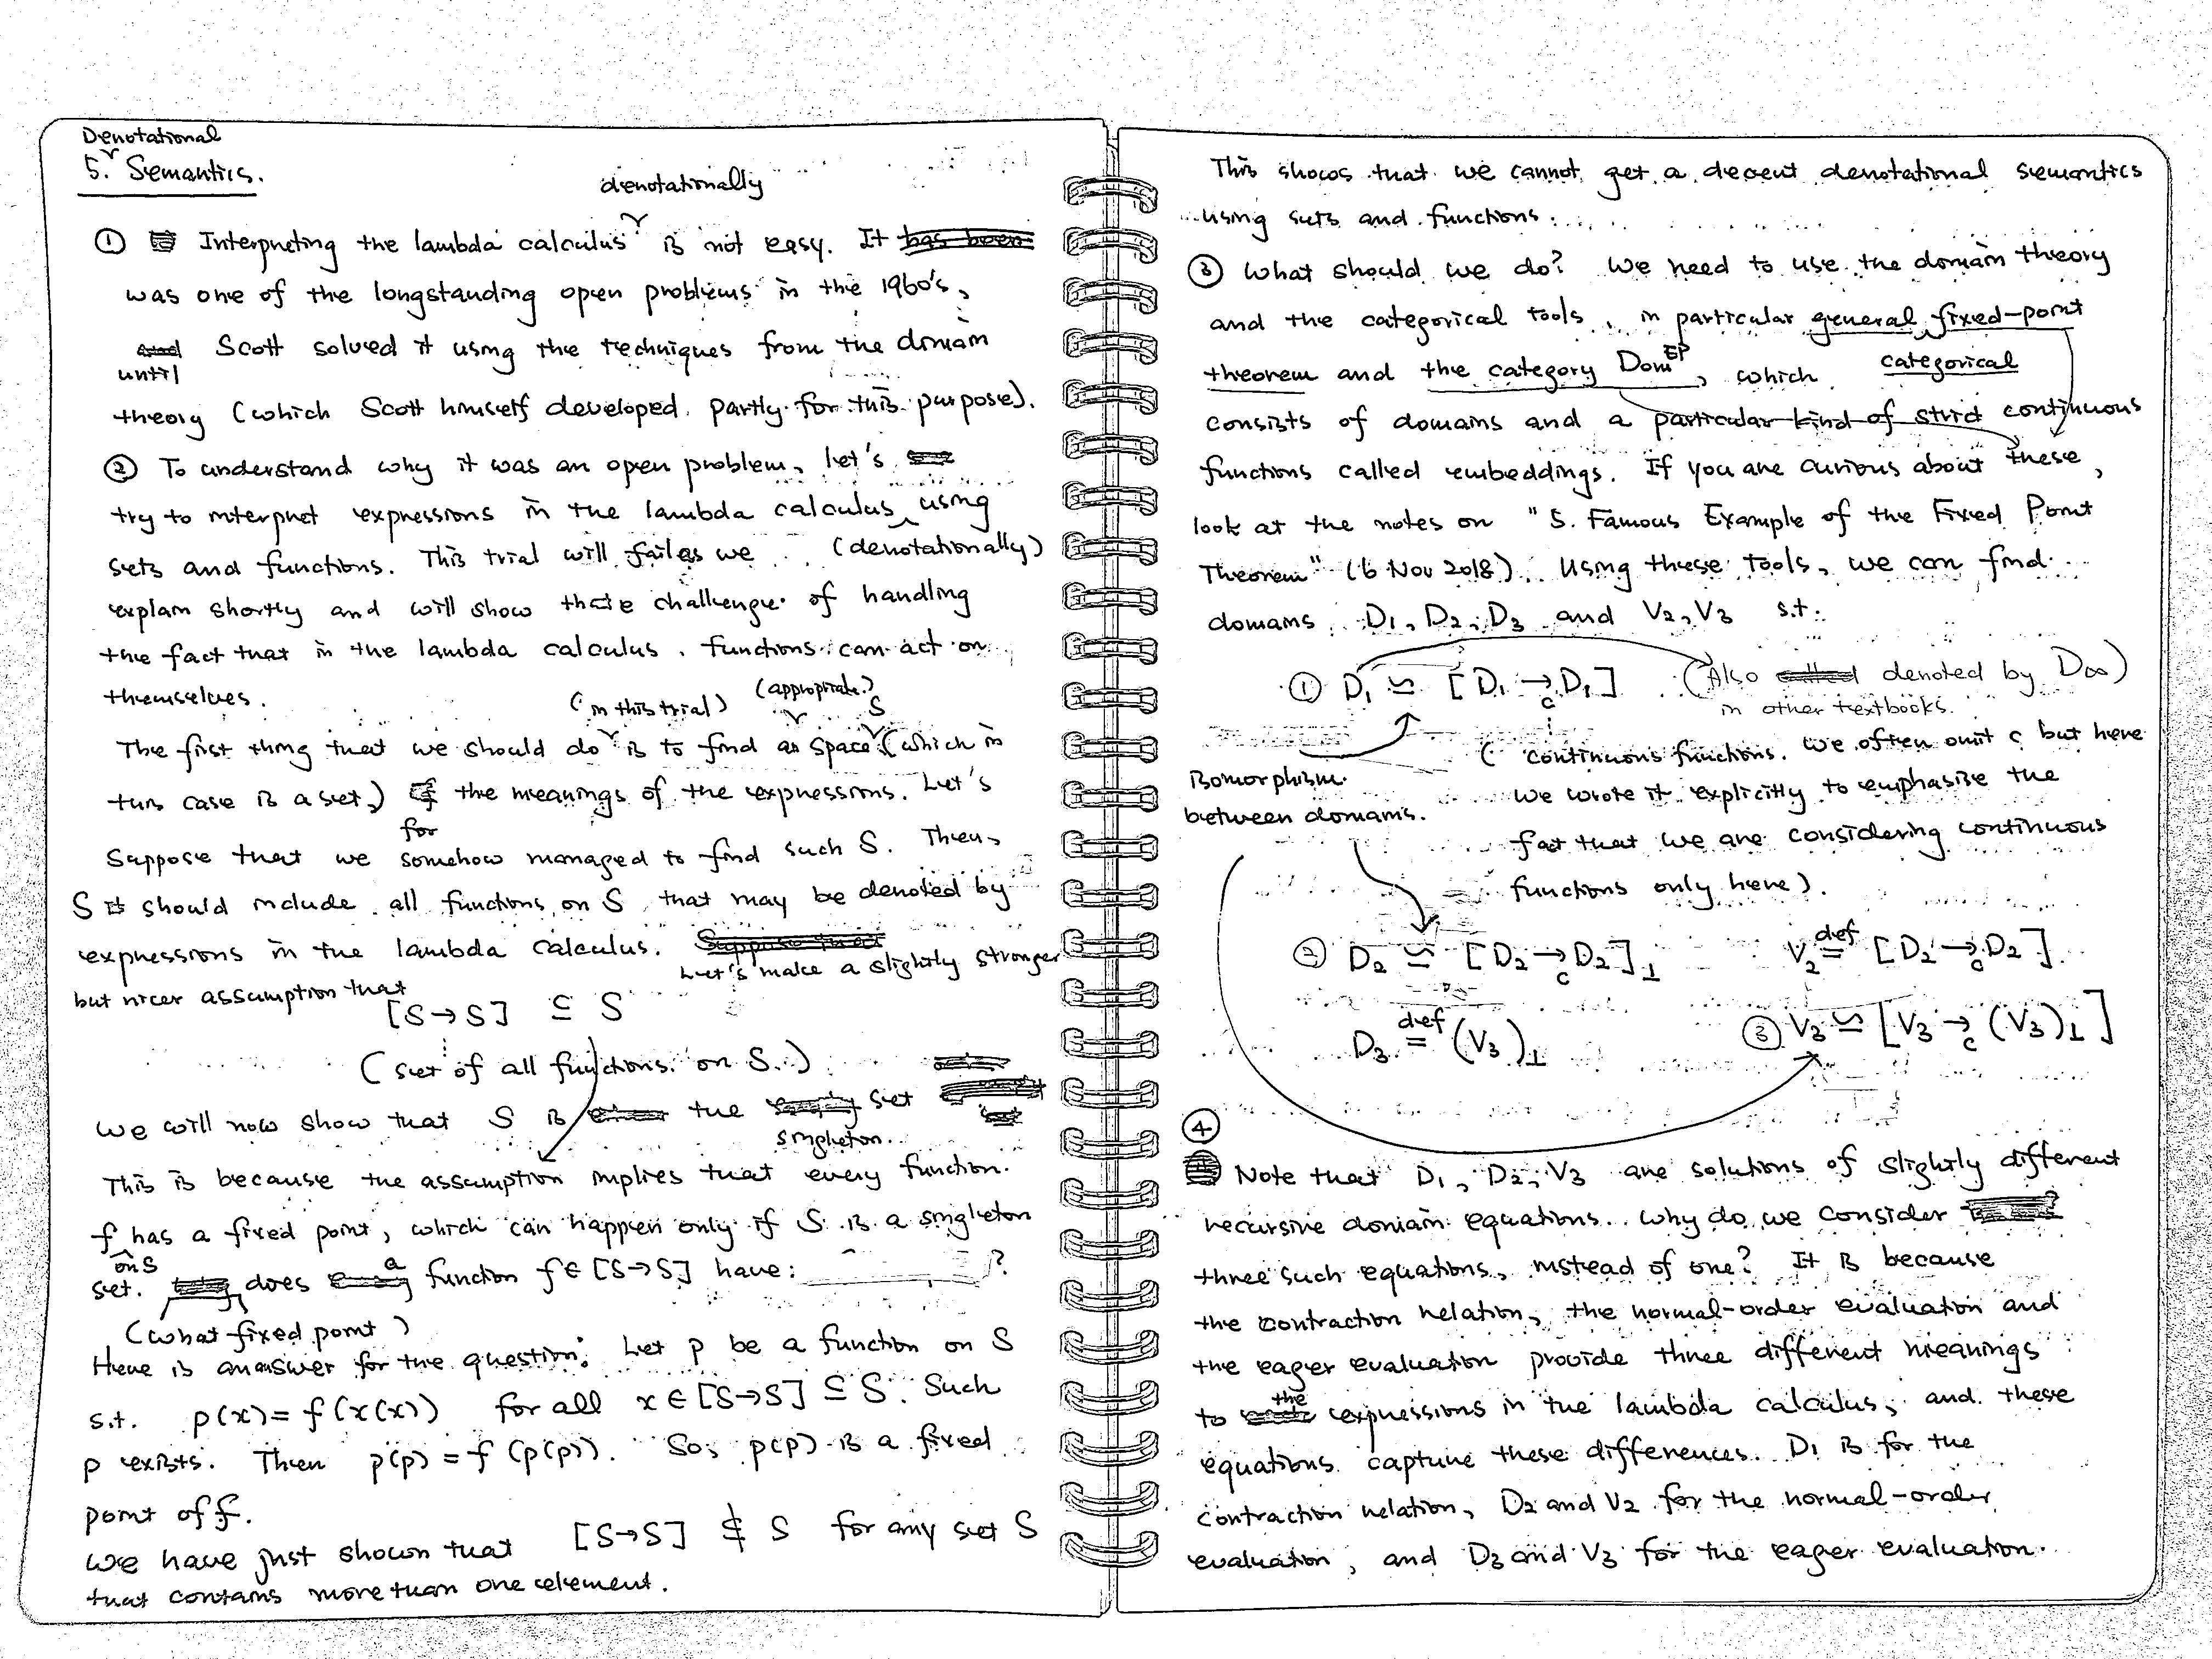 Denotational
5. Semantics.
denotationally
① Interpreting the lambda calculus is not easy. It has been
was one of the longstanding open problems in the 1960's,
until Scott solved it using the techniques from the domain
theory (which Scott himself developed partly for this purpose).
② To understand why it was an open problem, let's
try to interpret expressions in the lambda calculus using
(denotationally)
sets and functions. This trial will fail as we
explain shortly and will show the challenge of handling
the fact that in the lambda calculus, functions can act on
themselves.
(in this trial) (appropriate) S
The first thing that we should do is to find an space (which in
this case is a set) for the meanings of the expressions. Let's
suppose that we somehow managed to find such S. Then,
S should include all functions on S that may be denoted by
expressions in the lambda calculus. Suppose that
Let's make a slightly stronger
but nicer assumption that
[S→S] ⊆ S
(set of all functions on S.)
We will now show that S is the set
singleton
This is because the assumption implies that every function
f has a fixed point, which can happen only if S is a singleton
on S
set. does a function f∈[S→S] have: ?
(what fixed point)
Here is an answer for the question: Let p be a function on S
s.t. p(x) = f(x(x)) for all x∈[S→S] ⊆ S. Such
p exists. Then p(p) = f(p(p)). So, p(p) is a fixed
point of f.
We have just shown that [S→S] ⊈ S for any set S
that contains more than one element.
This shows that we cannot get a decent denotational semantics
using sets and functions.
③ What should we do? We need to use the domain theory
and the categorical tools, in particular general fixed-point
theorem and the category Dom^EP, which categorical
consists of domains and a particular kind of strict continuous
functions called embeddings. If you are curious about these,
look at the notes on "5. Famous Example of the Fixed Point
Theorem" (6 Nov 2018). Using these tools, we can find
domains D₁, D₂, D₃ and V₂, V₃ s.t.
① D₁ ≃ [D₁ →c D₁] (Also called denoted by D∞)
in other textbooks.
( continuous functions. We often omit c but here
isomorphism
we wrote it explicitly to emphasise the
between domains.
fact that we are considering continuous
functions only here).
② D₂ ≃ [D₂ →c D₂]⊥ V₂ def= [D₂ →c D₂].
D₃ def= (V₃)⊥ ③ V₃ ≃ [V₃ →c (V₃)⊥]
④
Note that D₁, D₂, V₃ are solutions of slightly different
recursive domain equations. Why do we consider
three such equations, instead of one? It is because
the contraction relation, the normal-order evaluation and
the eager evaluation provide three different meanings
to the expressions in the lambda calculus, and these
equations capture these differences. D₁ is for the
contraction relation, D₂ and V₂ for the normal-order
evaluation, and D₃ and V₃ for the eager evaluation.